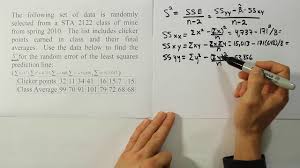 The following set of data is randomly
selected from a STA 2122 class of mine
from spring 2010. The list includes clicker
points earned in class and their final
averages. Use the data below to find the
S² for the random error of the least squares
prediction line:
Clicker Points 32 11 34 41 15 6 16 15
Class Average 99 70 91 91 65 68 67
S² = SSE/n-2 = SSyy - β̂₁·SSxy/n-2
SSxx = Σx² - (Σx)²/n = 4,737 -
SSxy = Σxy - ΣxΣy/n = 15,013 -
SSyy = Σy² -